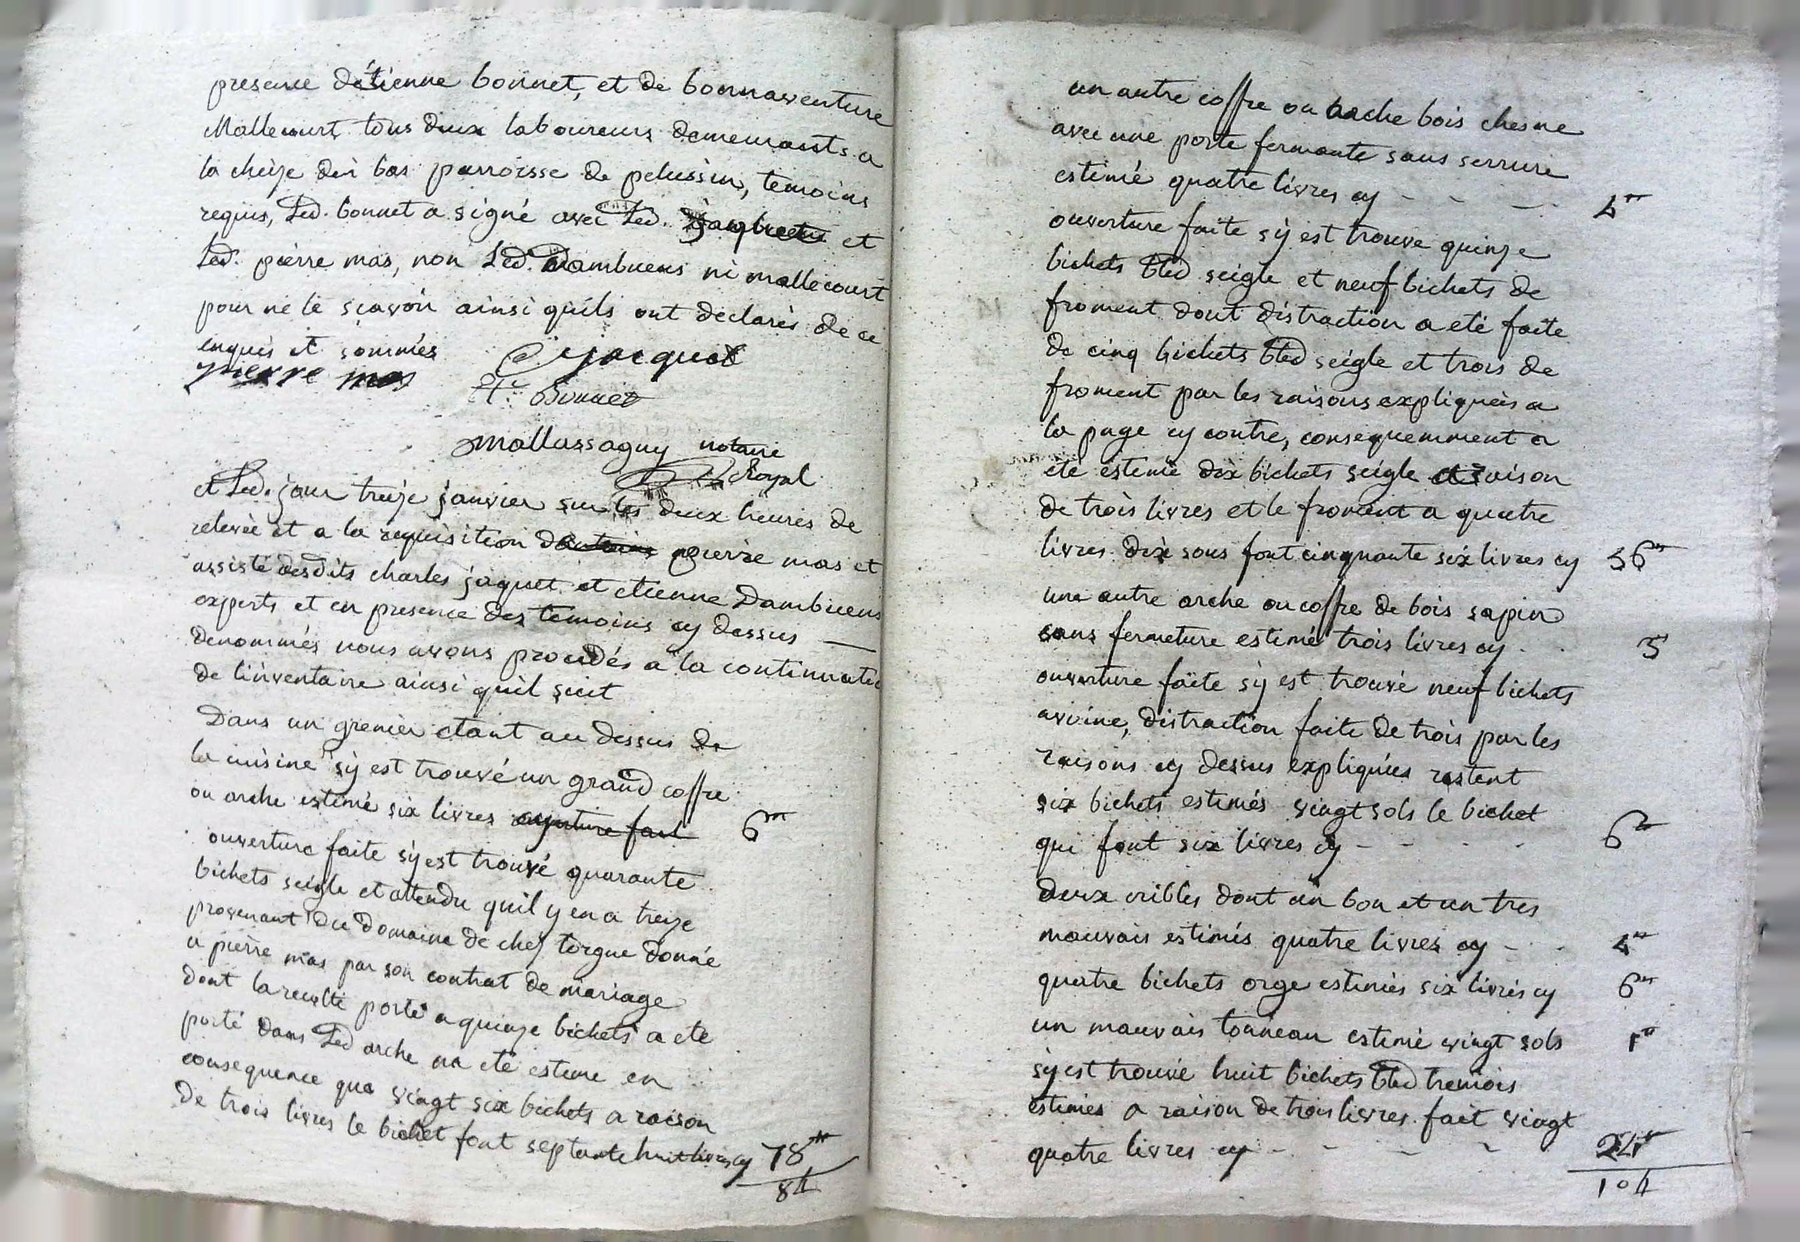 presence détienne bonnet, et de bonnaventure
Mallecourt tous deux laboureurs demeurants a
la cheize den bas parroisse de pelussin, temoins
requis, Led. bonnet a signé avec Led. jacquet et
Led. pierre mas, non Led. Dambuens ni mallecourt
pour ne le scavoir ainsi quils ont declarés de ce
enquis et sommés
cjacquet
pierre mas
Et. Bonnet
Mallassagny notaire
Royal
et Led. jour treize janvier sur les deux heures de
relevée et a la requisition pierre mas et
assisté desdits charles jaquet et etienne Dambuens
experts et en presence des temoins cy dessus —
denommés nous avons procedés a la continuatio
de linventaire ainsi quil suit
Dans un grenier etant au dessus de
la cuisine sÿ est trouvé un grand coffre
ou arche estimé six livres ouverture fait 6tt
ouverture faite sÿ est trouvé quarante
bichets seigle et attendu quil y en a treze
provenant du domaine de chez torgue donné
a pierre mas par son contrat de mariage
dont la recolte porté a quinze bichets a eté
porté dans Led arche na eté estimé en
consequence que vingt six bichets a raison
de trois livres le bichet font septante huit livres cy 78tt
84
un autre coffre ou arche bois chesne
avec une porte fermante sans serrure
estimé quatre livres cy - - - 4tt
ouverture faite sÿ est trouve quinze
bichets bled seigle et neuf bichets de
froment dont distraction a eté faite
de cinq bichets bled seigle et trois de
froment par les raisons expliquées a
la page cy contre, consequemment a
eté estimé dix bichets seigle a raison
de trois livres et le froment a quatre
livres dix sous font cinquante six livres cy 56tt
une autre arche ou coffre de bois sapin
sans fermeture estimé trois livres cy . . 3
ouverture faite sÿ est trouvé neuf bichets
avoine, distraction faite de trois par les
raisons cy dessus expliquées restent
six bichets estimés vingt sols le bichet
qui font six livres cy - - - - 6tt
deux cribles dont un bon et un tres
mauvais estimés quatre livres cy - - 4tt
quatre bichets orge estimés six livres cy 6tt
un mauvais tonneau estimé vingt sols 1tt
sÿ est trouvé huit bichets bled tremois
estimés a raison de trois livres fait vingt
quatre livres cy - - - - 24tt
104